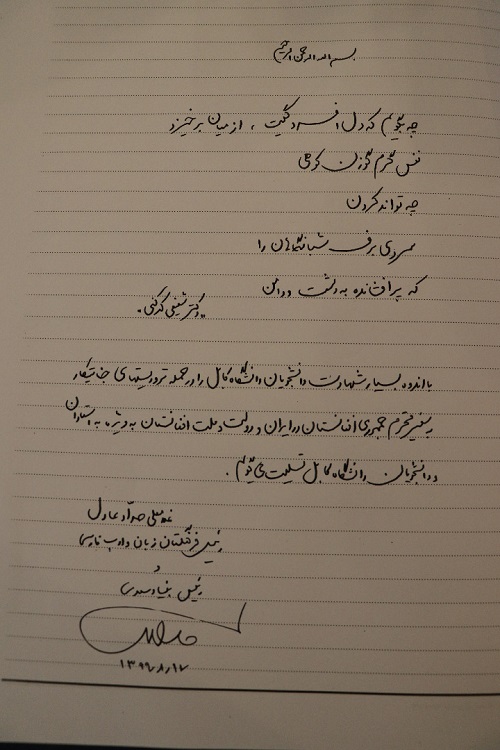 بسم الله الرحمن الرحیم
چه بگویم که دل افسردگیت، از میان برخیزد
نفس گرم گوزن کوهی
چه تواند کردن
سردی برف شبانگاهان را
که پر افشانده به دشت و دامن
«دکتر شفیعی کدکنی»
با اندوه بسیار شهادت دانشجویان دانشگاه کابل را در حمله تروریستهای جنایتکار
به سفیر محترم جمهوری افغانستان در ایران و دولت و ملت افغانستان به ویژه به استادان
و دانشجویان دانشگاه کابل تسلیت می‌گویم.
غلامعلی حدّاد عادل
رئیس فرهنگستان زبان و ادب فارسی
و
رئیس بنیاد سعدی
۱۳۹۹/۸/۱۷